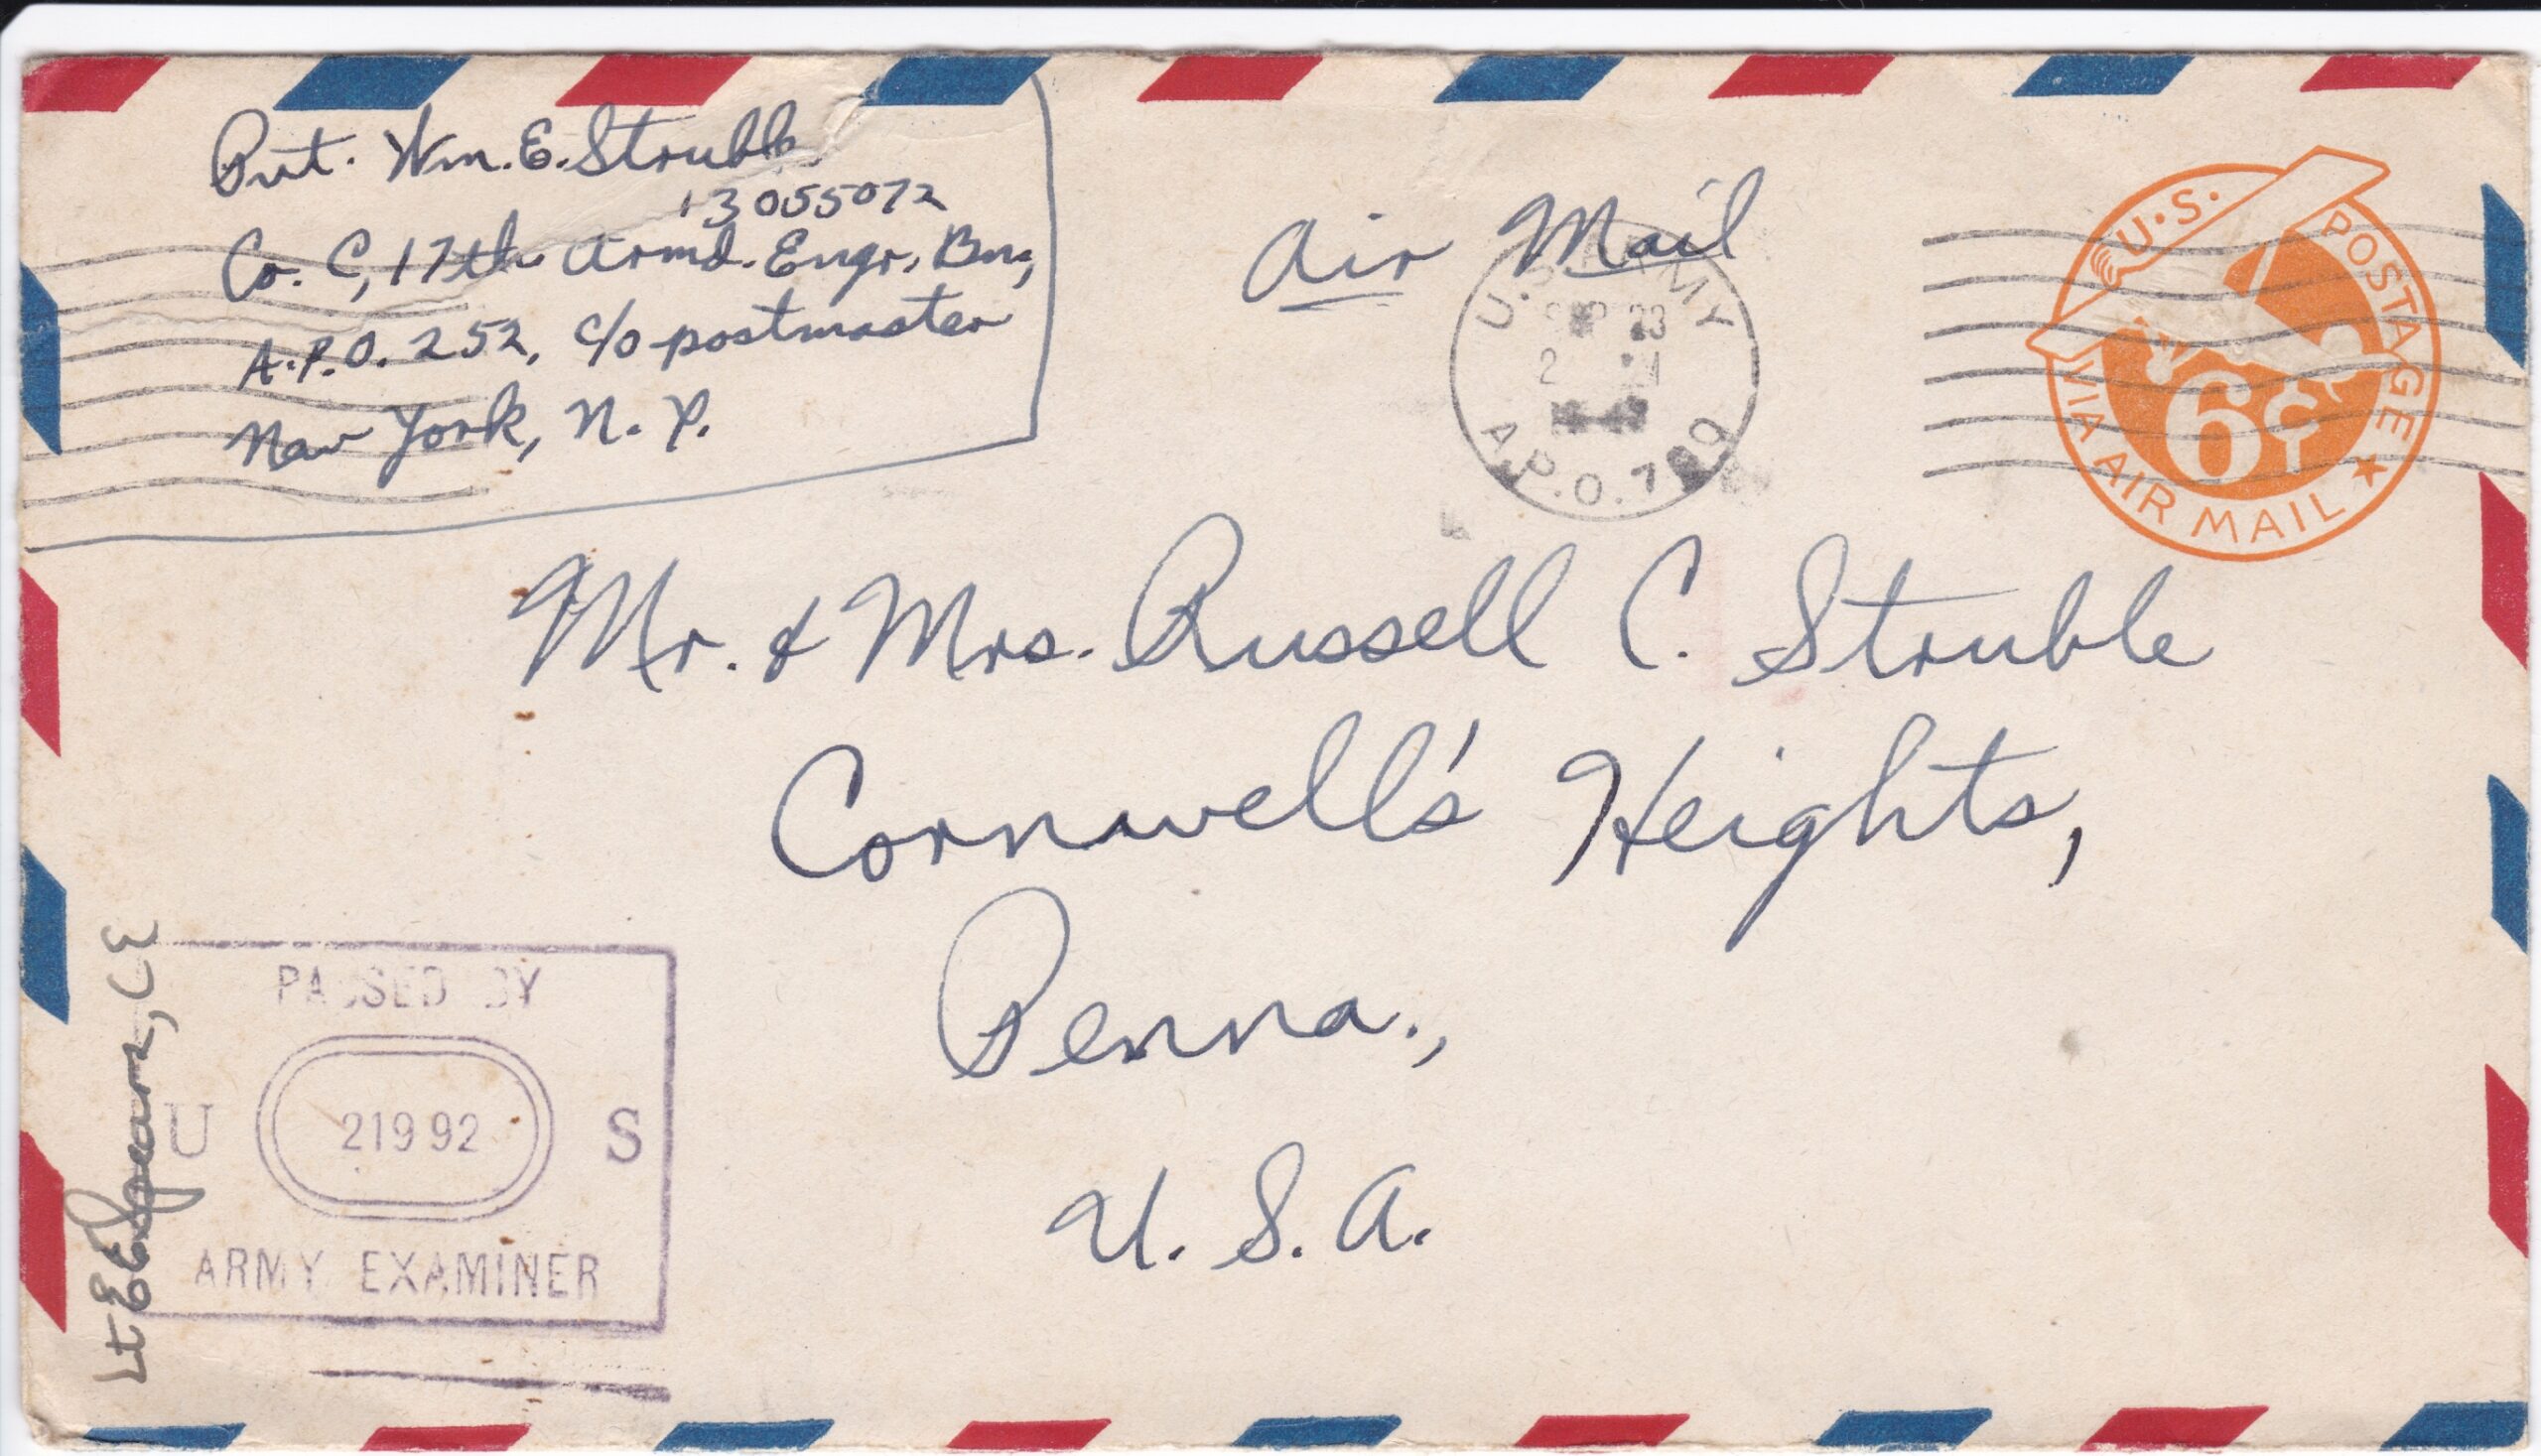 Pvt. Wm. E. Struble
13055072
Co. C, 17th Armd. Engr. Bn,
A.P.O. 252, c/o postmaster
New York, N. Y.
Air Mail
U.S. ARMY
SEP 23
2
A.P.O.
U.S. POSTAGE
6¢
VIA AIR MAIL
Mr. & Mrs. Russell C. Struble
Cornwell's Heights,
Penna.,
U. S. A.
PASSED BY
U 21992 S
ARMY EXAMINER
Lt
, CE